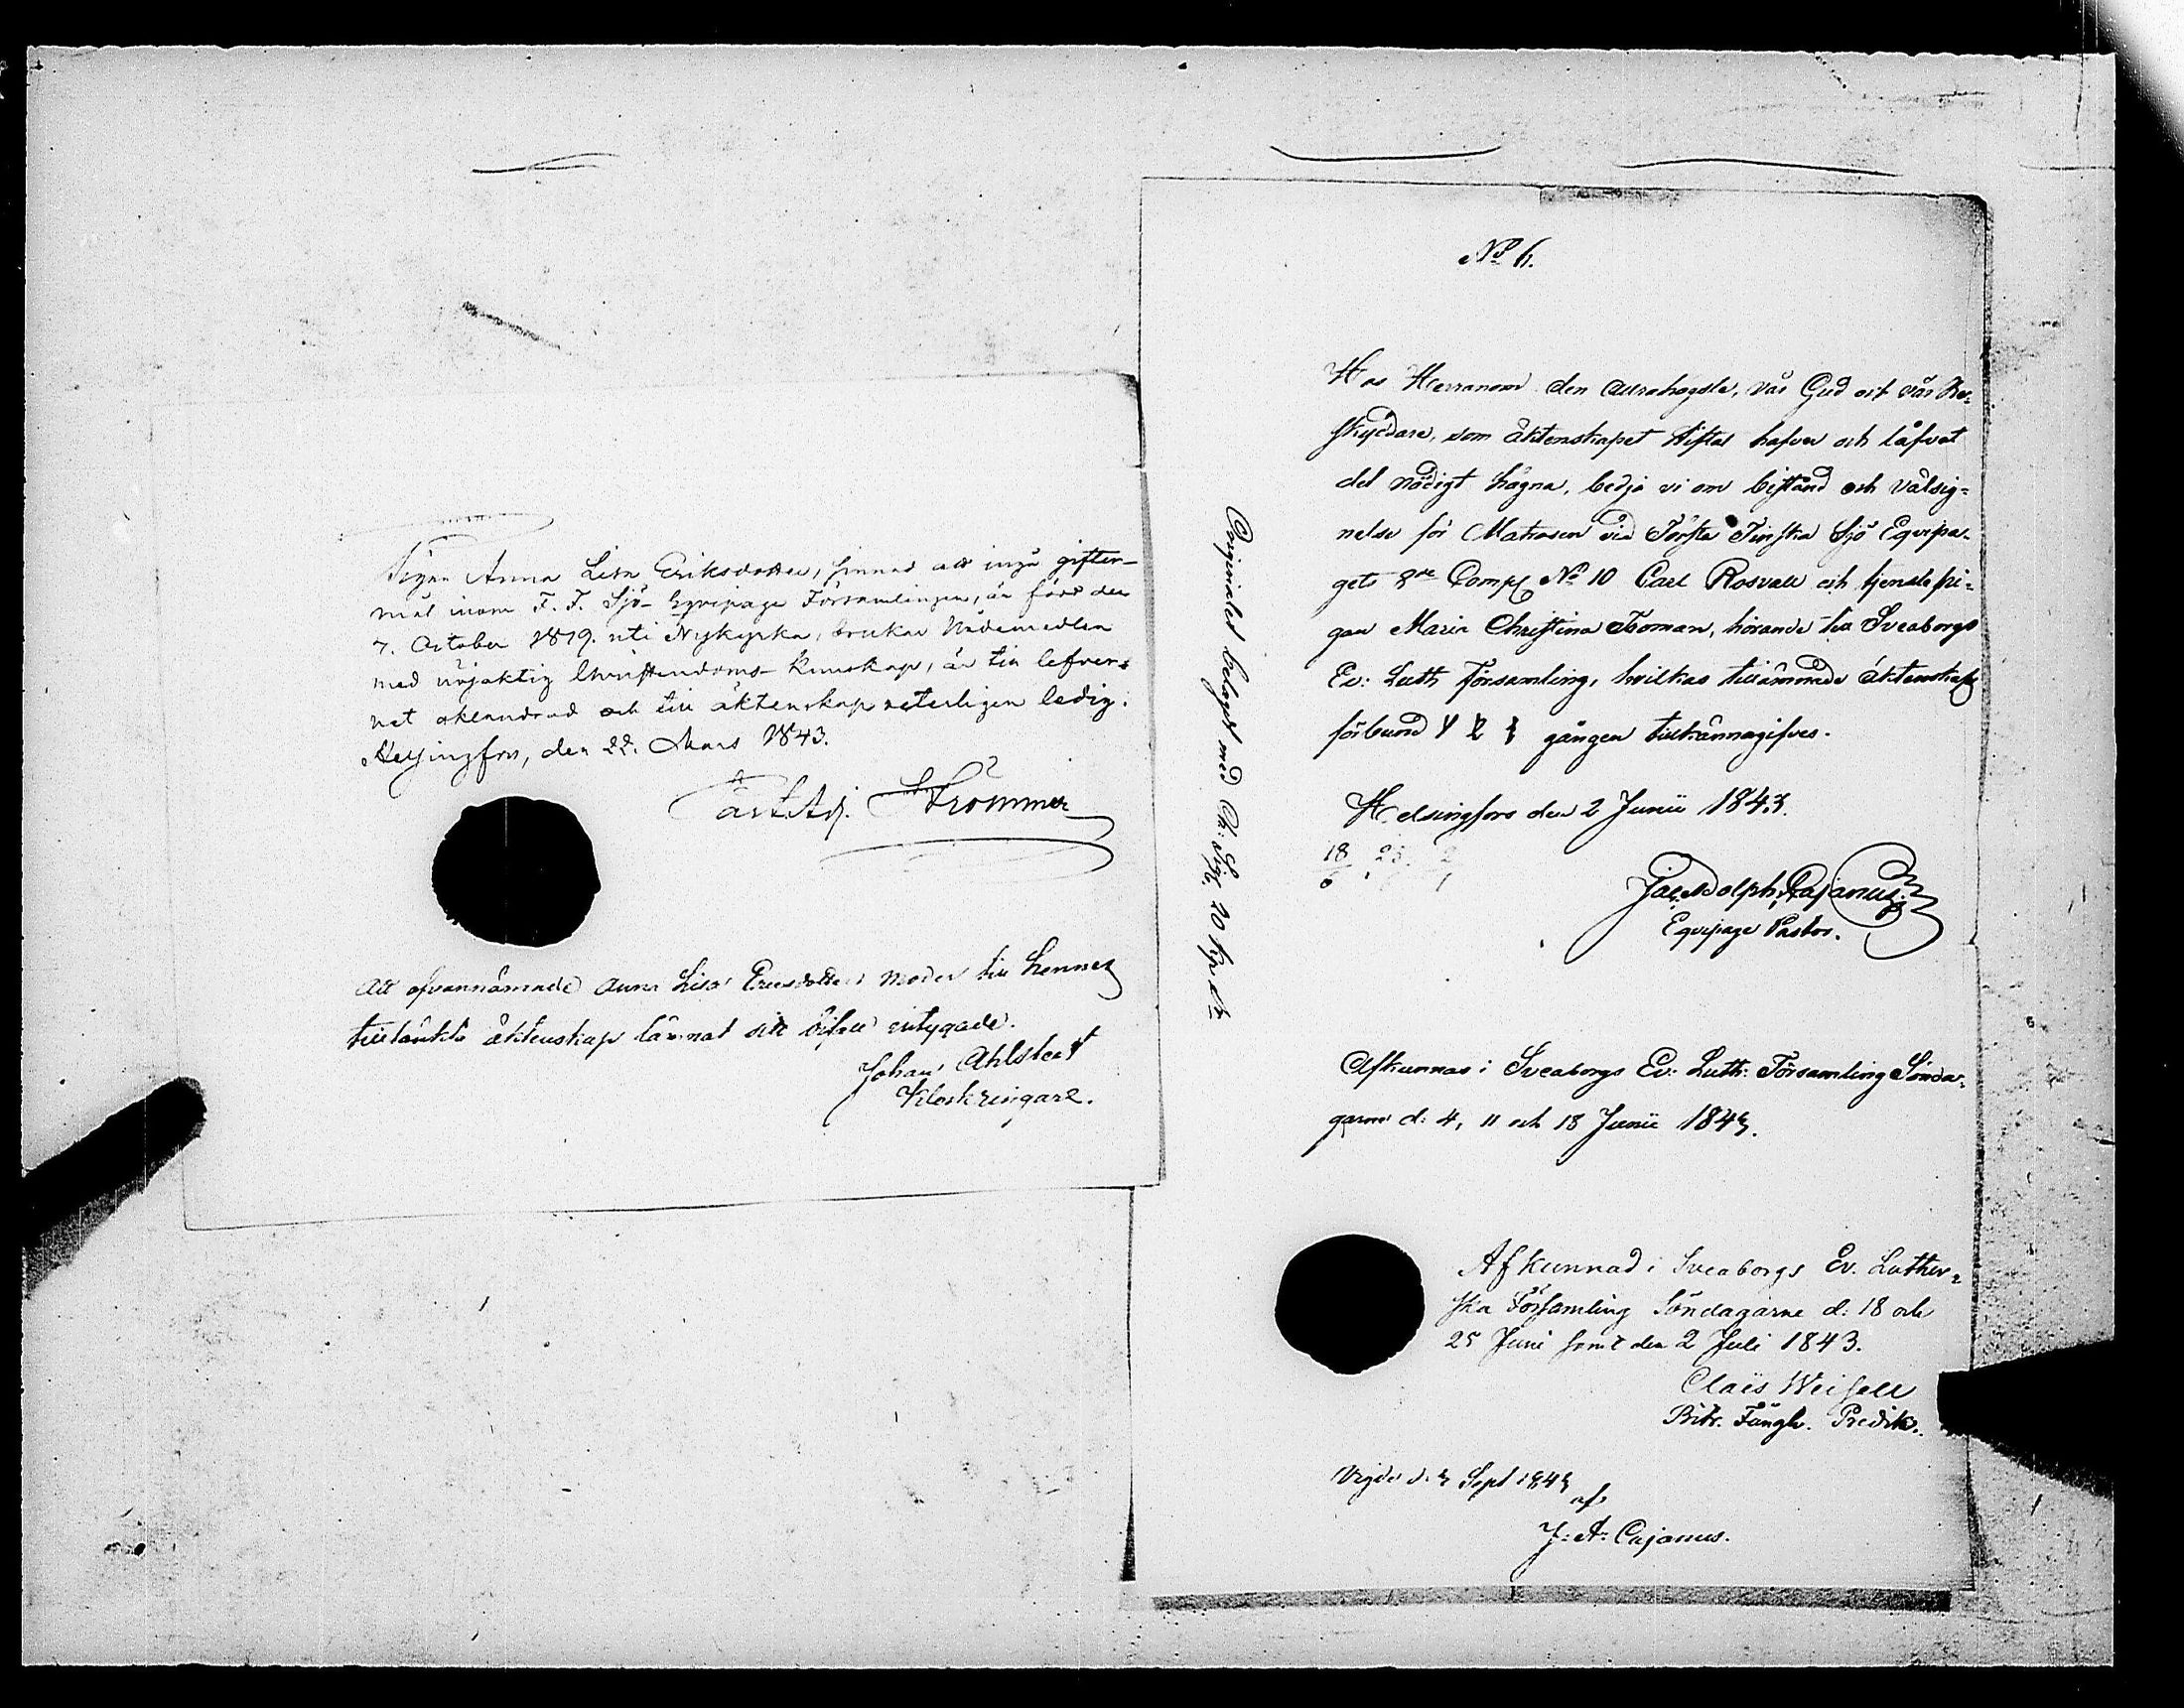 Pigan Anna Lisa Eriksdotter, sinnad att ingå gifter-
mål inom F. F. Sjö-Eqvipage Församlingen, är född den
7. October 1819. uti Nykyrka, brukar Nådemedlen
med nöjaktig Christendoms-kunskap, är till lefver-
net oklandrad och till äktenskap veterligen ledig.
Helsingfors, den 22. Mars 1843.
Strömmer
Att ofvannämnde Anna Lisa Ericsdotters moder till hennes
tilltänkta äktenskap lämnat sitt bifall intygade.
Johan Ahlstedt
Klockringare.
No 6.
Hos Herranom den allrahögste, vår Gud och vår Be-
skyddare, som äktenskapet stiftat hafver och låfvat
det nådigt hägna, bedja vi om bistånd och välsig-
nelse för Matrosen vid Första Finska Sjö Eqvipa-
gets 8de Comp. No 10 Carl Rosvall och tjenstepi-
gan Maria Christina Froman, hörande till Sveaborgs
Ev: Luth Församling, hvilkas tillämnade äktenskaps
förbund 1 2 3 gången tillkännagifves.
Helsingfors den 2 Junii 1843.
18 25. 2
6 6 1
Jac. Adolph. Cajanus.
Eqvipage Pastor.
Originalet belagt med Ch: Sigl. 20 kop. S:r
Afkunnas i Sveaborgs Ev: Luth: Församling Sönda-
garne d: 4, 11 och 18 Junii 1843.
Afkunnad i Sveaborgs Ev. Luther-
ska Församling Söndagarne d: 18 och
25 Juni samt den 2 Juli 1843.
Claës Weisell
Bitr. Fängls. Predik.
Vigde d. 3 Sept 1843
af
J: A: Cajanus.